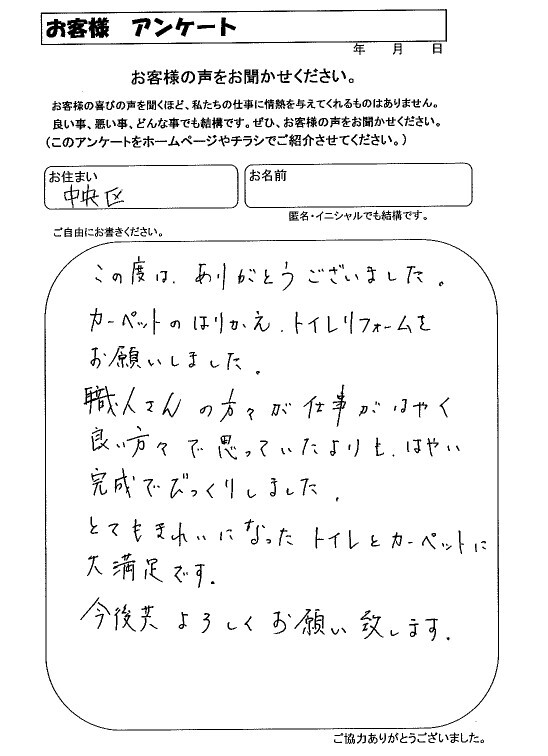 お客様 アンケート
年 月 日
お客様の声をお聞かせください。
お客様の喜びの声を聞くほど、私たちの仕事に情熱を与えてくれるものはありません。
良い事、悪い事、どんな事でも結構です。ぜひ、お客様の声をお聞かせください。
(このアンケートをホームページやチラシでご紹介させてください。)
お住まい
中央区
お名前
匿名・イニシャルでも結構です。
ご自由にお書きください。
この度は、ありがとうございました。
カーペットのはりかえ、トイレリフォームを
お願いしました。
職人さんの方々が仕事がはやく
良い方々で思っていたよりも、はやい
完成でびっくりしました。
とてもきれいになったトイレとカーペットに
大満足です。
今後共よろしくお願い致します。
ご協力ありがとうございました。